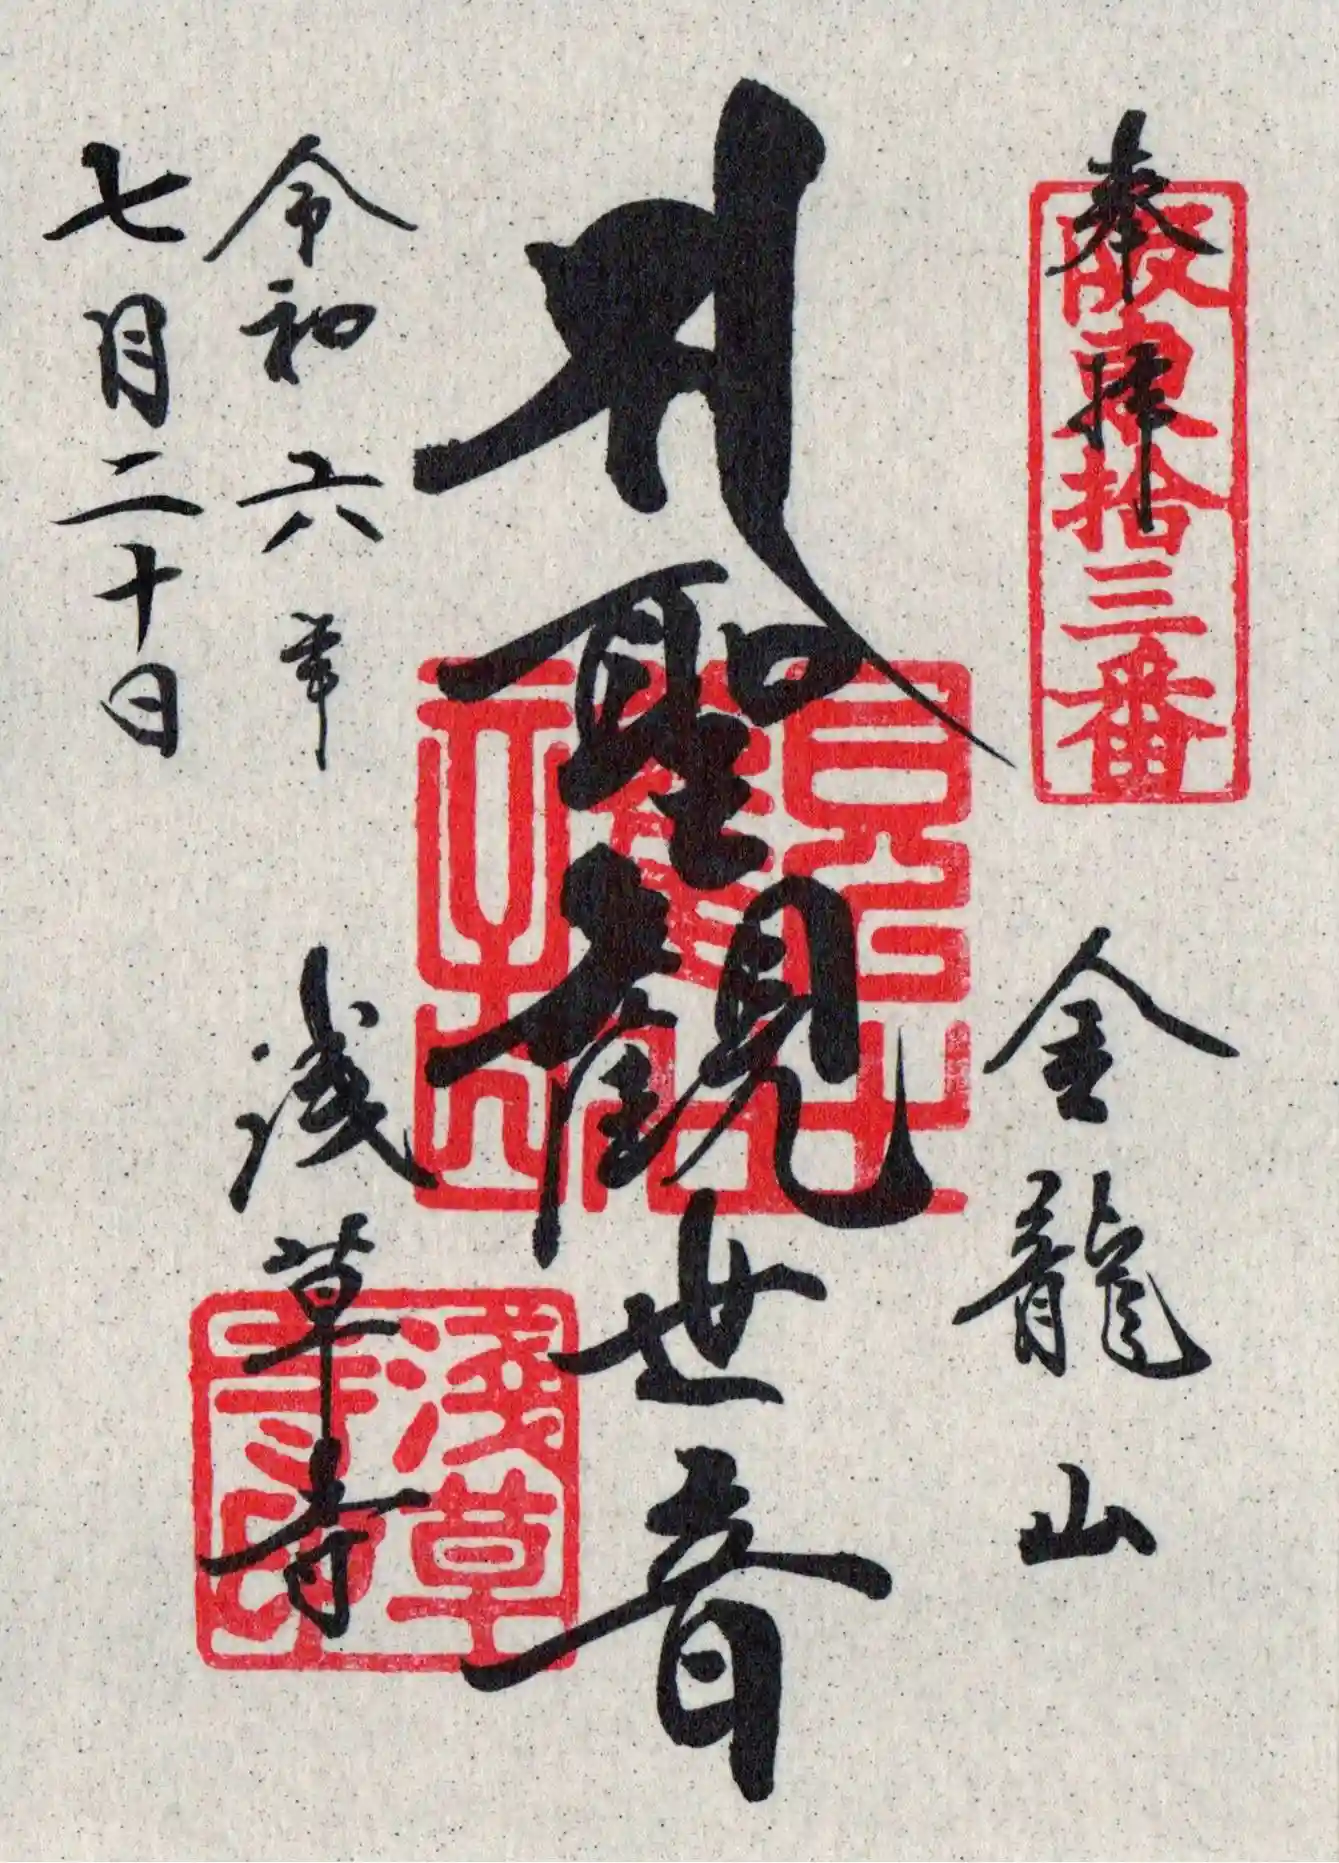 奉拝
坂東拾三番
金龍山
聖観世音
浅草寺
令和六年
七月二十日
淺草寺印